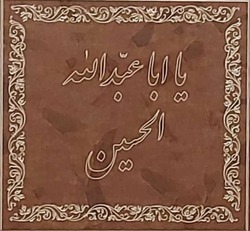 یا ابا عبّدالله
الحسین